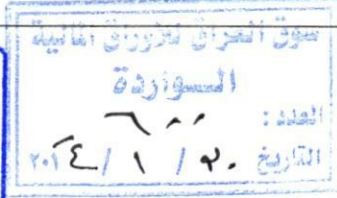 سوق العراق للأوراق المالية
الـــواردة
العدد : ٦٠٠
التاريخ ٢٠ / ١ / ٢٠١٤